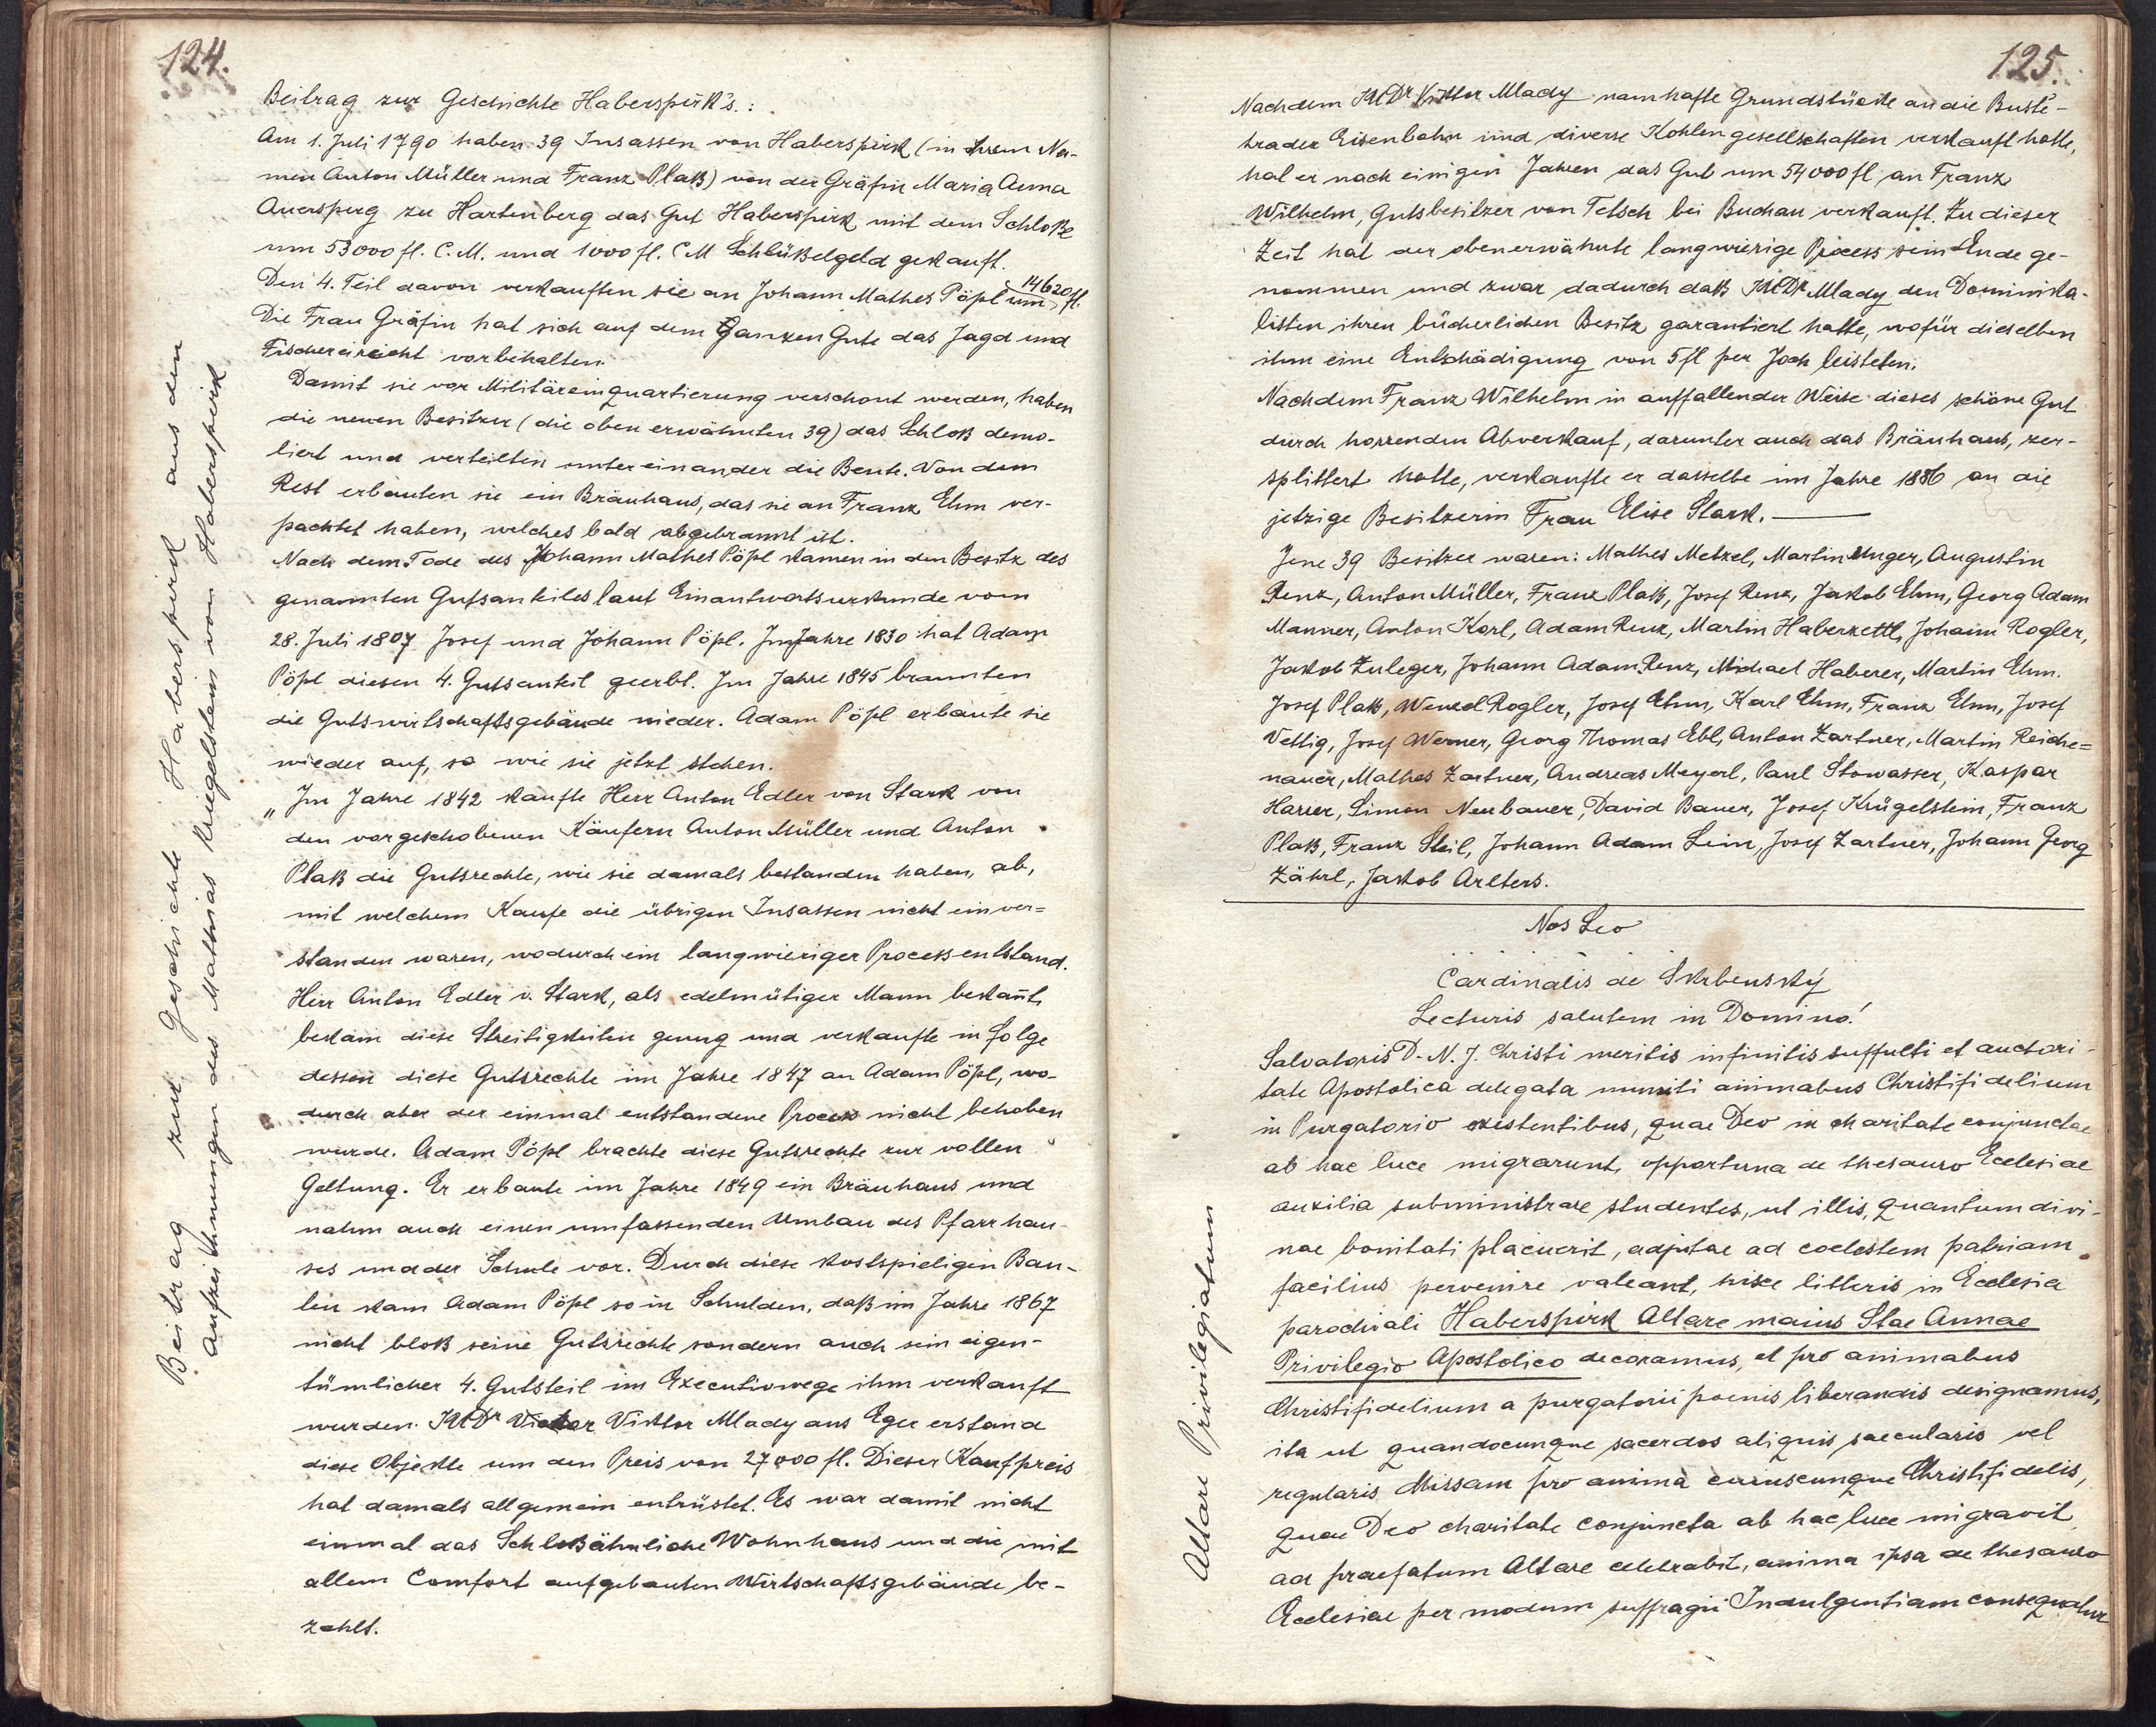 124.
Beitrag zur Geschichte Haberspirk aus den
Aufzeichnungen des Mathias Kruegelstein von Haberspirk
Beitrag zur Geschichte Haberspirk's.:
Am 1. Juli 1790 haben 39 Insassen von Haberspirk (in ihrem Na-
men Anton Müller und Franz Plaß) von der Gräfin Maria Anna
Auersperg zu Hartenberg das Gut Haberspirk mit dem Schloße
um 53000 fl. C.M. und 1000 fl. C M Schlüßelgeld gekauft.
Den 4. Teil davon verkauften sie an Johann Mathes Pöpl um 14620 fl.
Die Frau Gräfin hat sich auf dem Ganzen Gute das Jagd und
Fischereirecht vorbehalten.
Damit sie vor Militäreinquartierung verschont werden, haben
die neuen Besitzer (die oben erwähnten 39) das Schloß demo-
liert und verteilten untereinander die Beute. Von dem
Rest erbauten sie ein Bräuhaus, das sie an Franz Ehm ver-
pachtet haben, welches bald abgebrannt ist.
Nach dem Tode des Johann Mathes Pöpl kamen in den Besitz des
genannten Gutsanteiles laut Einantwortsurkunde vom
28. Juli 1807 Josef und Johann Pöpl. Im Jahre 1830 hat Adam
Pöpl diesen 4. Gutsanteil geerbt. Im Jahre 1845 brannten
die Gutswirtschaftsgebäude nieder. Adam Pöpl erbaute sie
wieder auf, so wie sie jetzt stehen.
„ Im Jahre 1842 kaufte Herr Anton Edler von Stark von
den vorgeschobenen Käufern Anton Müller und Anton
Plaß die Gutsrechte, wie sie damals bestanden haben, ab,
mit welchem Kaufe die übrigen Insassen nicht einver=
standen waren, wodurch ein langwieriger Process entstand.
Herr Anton Edler v. Stark, als edelmütiger Mann bekan̄t,
bekam diese Streitigkeiten genug und verkaufte in folge
dessen diese Gutsrechte im Jahre 1847 an Adam Pöpl, wo-
durch aber der einmal entstandene Process nicht behoben
wurde. Adam Pöpl brachte diese Gutsrechte zur vollen
Geltung. Er erbaute im Jahre 1849 ein Bräuhaus und
nahm auch einen umfassenden Umbau des Pfarrhau-
ses und der Schule vor. Durch diese kostspieligen Bau-
ten kam Adam Pöpl so in Schulden, daß im Jahre 1867
nicht bloß seine Gutsrechte sondern auch sein eigen-
tümlicher 4. Gutsteil im Executivwege ihm verkauft
wurden. MUDr Viktor Mlady aus Eger erstand
diese Objekte um den Preis von 27000 fl. Dieser Kaufpreis
hat damals allgemein entrüstet. Es war damit nicht
einmal das Schloßähnliche Wohnhaus und die mit
allem Comfort aufgebauten Wirtschaftsgebäude be-
zahlt.
125.
Nachdem MUDr Viktor Mlady namhafte Grundstücke an die Buště-
hrader Eisenbahn und diverse Kohlengesellschaften verkauft hatte,
hat er nach einigen Jahren das Gut um 54000 fl an Franz
Wilhelm, Gutsbesitzer von Tetsch bei Buchau verkauft. Zu dieser
Zeit hat der obenerwähnte langwierige Process sein Ende ge-
nommen und zwar dadurch daß MUDr Mlady den Dominika-
listen ihren bücherlichen Besitz garantiert hatte, wofür dieselben
ihm eine Entschädigung von 5 fl per Joch leisteten.
Nachdem Franz Wilhelm in auffallender Weise dieses schöne Gut
durch horrenden Abverkauf, darunter auch das Bräuhaus, zer-
splittert hatte, verkaufte er dasselbe im Jahre 1886 an die
jetzige Besitzerin Frau Elise Stark. —
Jene 39 Besitzer waren: Mathes Metzel, Martin Unger, Augustin
Renz, Anton Müller, Franz Plaß, Josef Renz, Jakob Ehm, Georg Adam
Manner, Anton Karl, Adam Renz, Martin Haberzettl, Johann Rogler,
Jakob Zuleger, Johann Adam Renz, Michael Haberer, Martin Ehm.
Josef Plaß, Wenzel Rogler, Josef Ehm, Karl Ehm, Franz Ehm, Josef
Vettig, Josef Werner, Georg Thomas Ebl, Anton Zartner, Martin Reiche=
nauer, Mathes Zartner, Andreas Meyerl, Paul Stowasser, Kaspar
Harrer, Simon Neubauer, David Bauer, Josef Krügelstein, Franz
Plaß, Franz Steil, Johann Adam Lein, Josef Zartner, Johann Georg
Zährl, Jakob Arlters.
Nos Leo
Cardinalis de Skrbenský
Lecturis salutem in Domino!
Salvatoris D. N. J. Christi meritis infinitis suffulti et auctori-
tate Apostolica delegata muniti animabus Christifidelium
in Purgatorio existentibus, quae Deo in charitate conjunctae
ab hac luce migrarunt, opportuna de thesauro Ecclesiae
auxilia subministrare studentes, ut illis, quantum divi-
nae bonitati placuerit, adjutae ad coelestem patriam
facilius pervenire valeant, hisce litteris in Ecclesia
parochiali Haberspirk Altare maius Stae Annae
Privilegio Apostolico decoramus, et pro animabus
Christifidelium a purgatorii poenis liberandis designamus,
ita ut quandocunque sacerdos aliquis saecularis vel
regularis Missam pro anima cuiuscunque Christifidelis,
quae Deo charitate conjuncta ab hac luce migravit
ad praefatum Altare celebrabit, anima ipsa de thesauro
Ecclesiae per modum suffragii Indulgentiam consequatur
Altare Privilegiatum